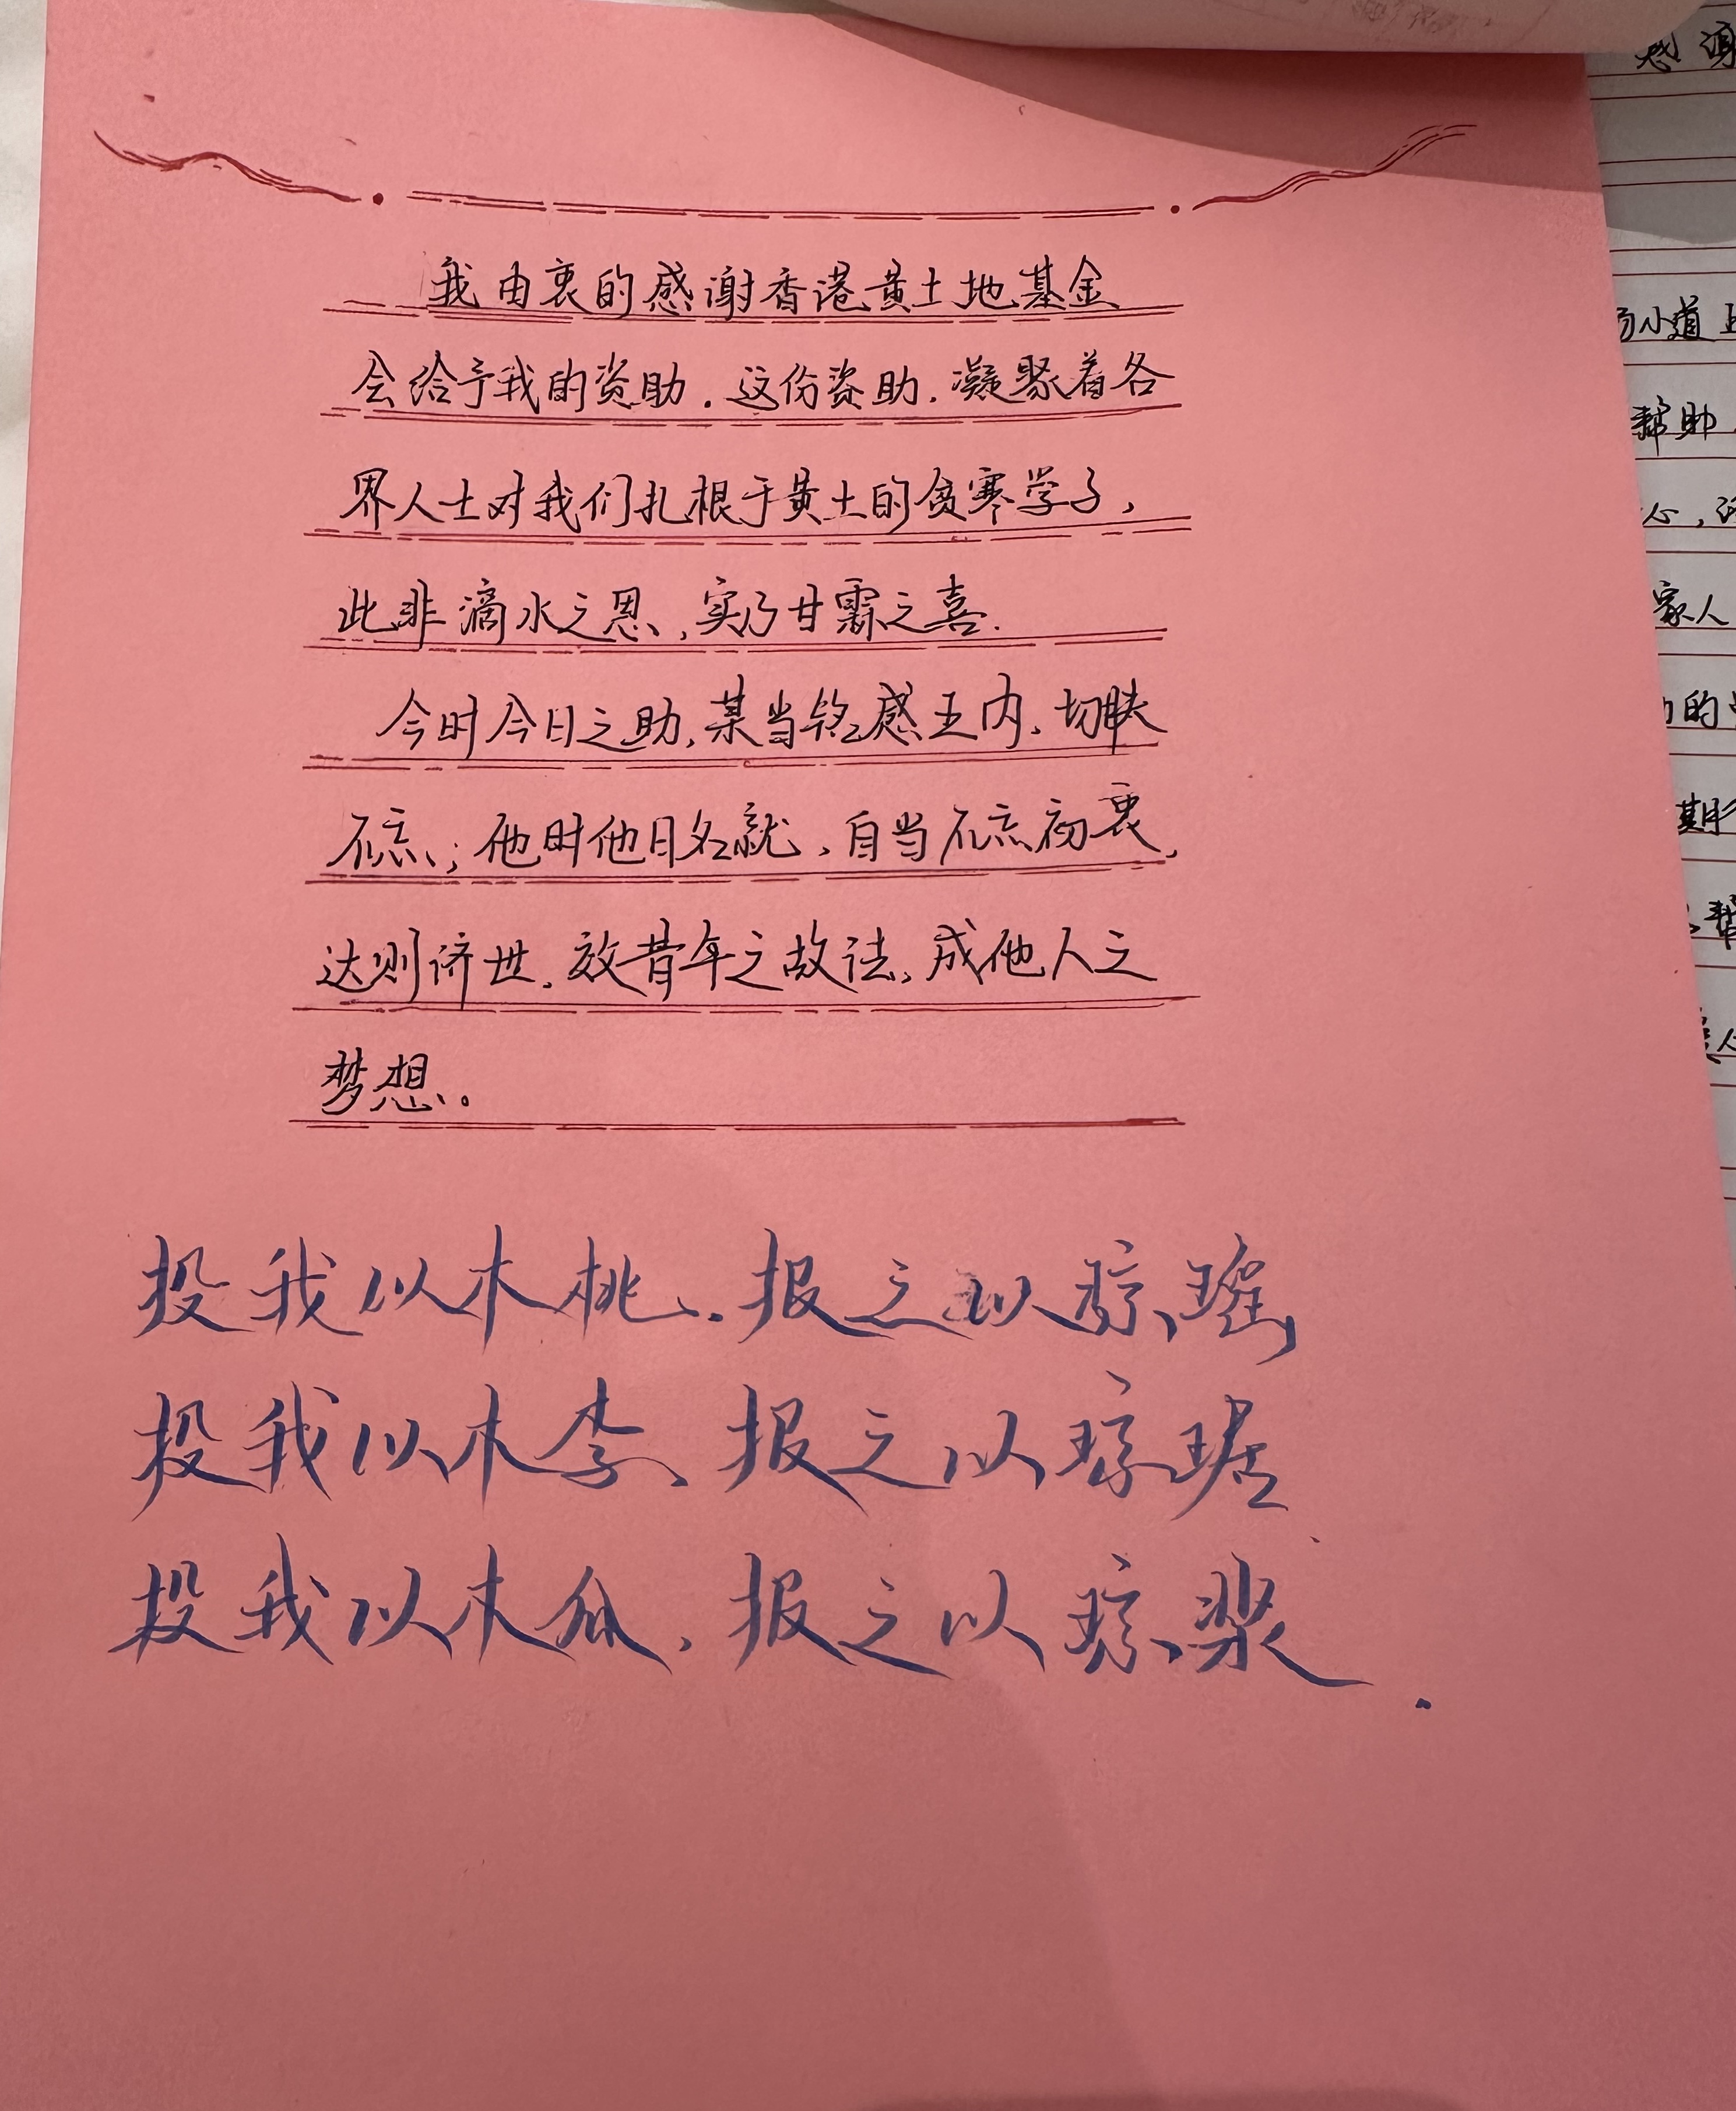 我由衷的感谢香港黄土地基金
会给予我的资助.这份资助.凝聚着各
界人士对我们扎根于黄土的贫寒学子,
此非滴水之恩,实乃甘霖之喜.
今时今日之助,某当铭感五内.切肤
不忘;他时他日名就,自当不忘初衷,
达则济世.效昔年之故法,成他人之
梦想。
投我以木桃.报之以琼瑶,
投我以木李、报之以琼琚
投我以木瓜,报之以琼浆.
感谢
小道
帮助
心,
家人
的